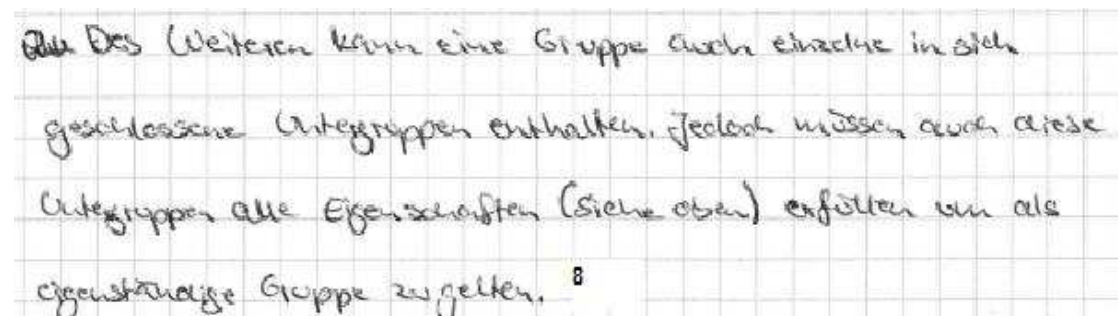 Des Weiteren kann eine Gruppe auch einzelne in sich
geschlossene Untergruppen enthalten. Jedoch müssen auch diese
Untergruppen alle Eigenschaften (siehe oben) erfüllen um als
eigenständige Gruppe zu gelten. 8